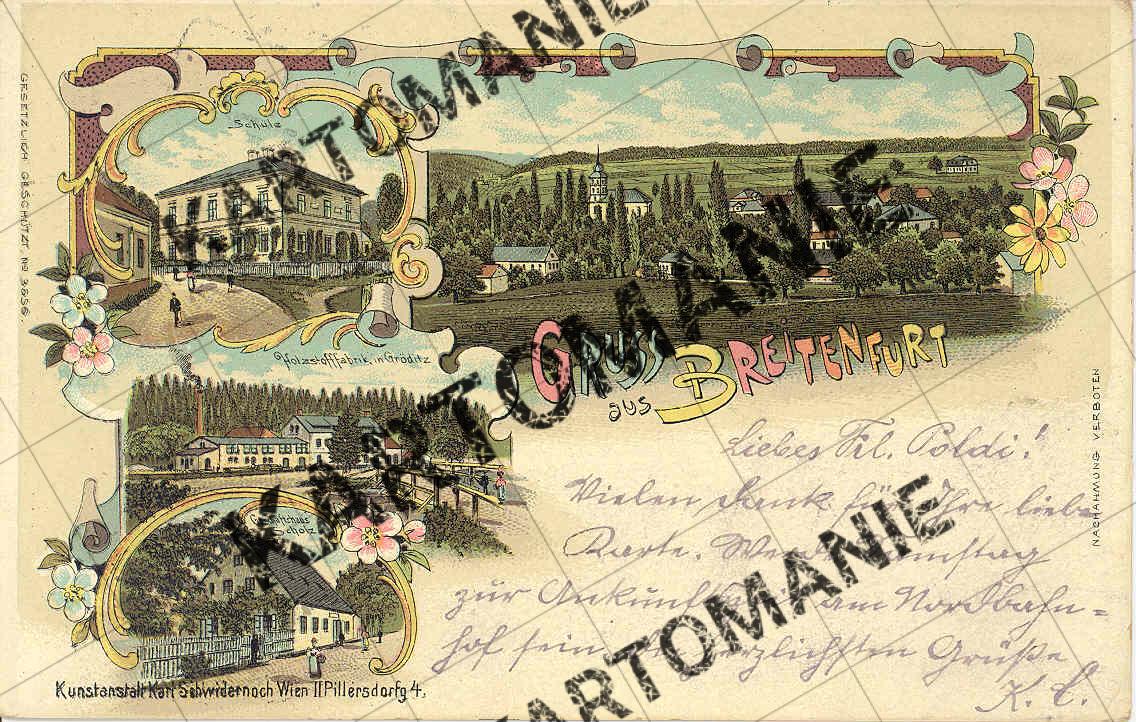 GESETZLICH GESCHÜTZT No 3656.
Schule
Holzstofffabrik in Gröditz
Scholz
GRUSS
aus BREITENFURT
Liebes Frl. Poldi!
Vielen Dank für Ihre liebe
Karte.
zur Ankunft am Nordbahn-
hof sein. herzlichsten Grüße
K. C.
NACHAHMUNG VERBOTEN
Kunstanstalt Karl Schwidernoch Wien II Pillersdorfg 4.
KARTOMANIE
KARTOMANIE
KARTOMANIE